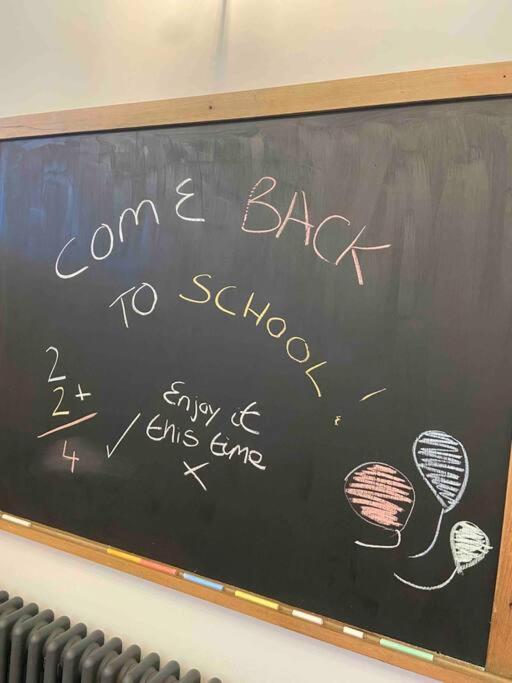 COME BACK
TO SCHOOL!
2
2+
4 ✓
Enjoy it
this time
x